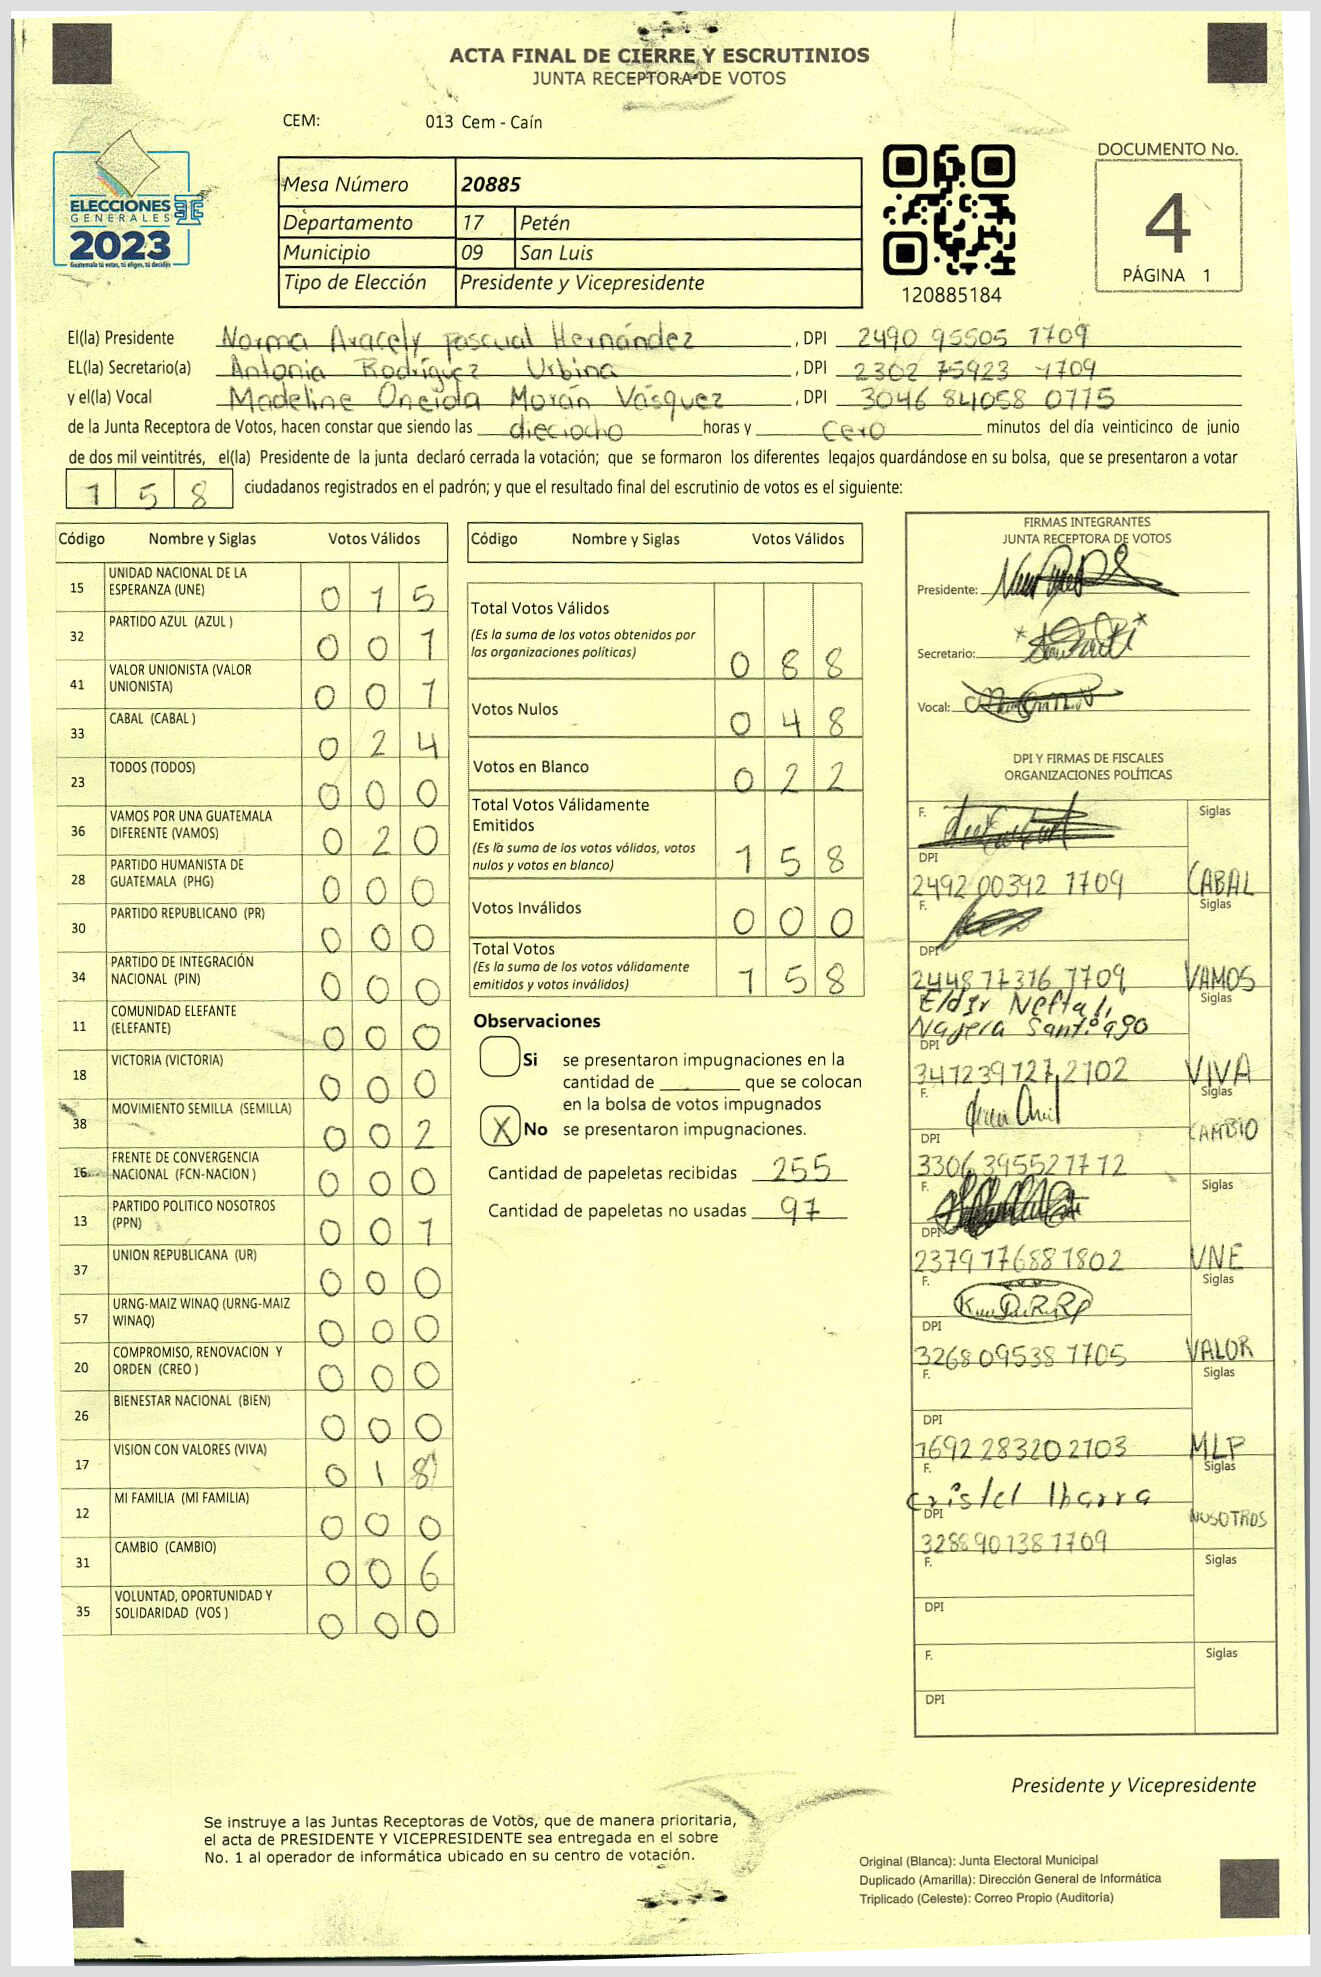 ACTA FINAL DE CIERRE Y ESCRUTINIOS
JUNTA RECEPTORA DE VOTOS
CEM: 013 Cem - Caín
ELECCIONES
GENERALES
2023
Guatemala tú votas, tú eliges, tú decides
Mesa Número 20885
Departamento 17 Petén
Municipio 09 San Luis
Tipo de Elección Presidente y Vicepresidente
120885184
DOCUMENTO No.
4
PÁGINA 1
El(la) Presidente Norma Aracely Pascual Hernández, DPI 2490 95505 1709
EL(la) Secretario(a) Antonia Rodríguez Urbina, DPI 2302 75923 1709
y el(la) Vocal Madeline Oneida Morán Vásquez, DPI 3046 84058 0775
de la Junta Receptora de Votos, hacen constar que siendo las dieciocho horas y cero minutos del día veinticinco de junio
de dos mil veintitrés, el(la) Presidente de la junta declaró cerrada la votación; que se formaron los diferentes legajos guardándose en su bolsa, que se presentaron a votar
1 5 8 ciudadanos registrados en el padrón; y que el resultado final del escrutinio de votos es el siguiente:
Código Nombre y Siglas Votos Válidos
15 UNIDAD NACIONAL DE LA ESPERANZA (UNE) 0 1 5
32 PARTIDO AZUL (AZUL ) 0 0 1
41 VALOR UNIONISTA (VALOR UNIONISTA) 0 0 1
33 CABAL (CABAL ) 0 2 4
23 TODOS (TODOS) 0 0 0
36 VAMOS POR UNA GUATEMALA DIFERENTE (VAMOS) 0 2 0
28 PARTIDO HUMANISTA DE GUATEMALA (PHG) 0 0 0
30 PARTIDO REPUBLICANO (PR) 0 0 0
34 PARTIDO DE INTEGRACIÓN NACIONAL (PIN) 0 0 0
11 COMUNIDAD ELEFANTE (ELEFANTE) 0 0 0
18 VICTORIA (VICTORIA) 0 0 0
38 MOVIMIENTO SEMILLA (SEMILLA) 0 0 2
16 FRENTE DE CONVERGENCIA NACIONAL (FCN-NACION ) 0 0 0
13 PARTIDO POLITICO NOSOTROS (PPN) 0 0 1
37 UNION REPUBLICANA (UR) 0 0 0
57 URNG-MAIZ WINAQ (URNG-MAIZ WINAQ) 0 0 0
20 COMPROMISO, RENOVACION Y ORDEN (CREO ) 0 0 0
26 BIENESTAR NACIONAL (BIEN) 0 0 0
17 VISION CON VALORES (VIVA) 0 1 8
12 MI FAMILIA (MI FAMILIA) 0 0 0
31 CAMBIO (CAMBIO) 0 0 6
35 VOLUNTAD, OPORTUNIDAD Y SOLIDARIDAD (VOS ) 0 0 0
Código Nombre y Siglas Votos Válidos
Total Votos Válidos
(Es la suma de los votos obtenidos por
las organizaciones políticas) 0 8 8
Votos Nulos 0 4 8
Votos en Blanco 0 2 2
Total Votos Válidamente
Emitidos
(Es la suma de los votos válidos, votos
nulos y votos en blanco) 1 5 8
Votos Inválidos 0 0 0
Total Votos
(Es la suma de los votos válidamente
emitidos y votos inválidos) 1 5 8
Observaciones
Si se presentaron impugnaciones en la
cantidad de ______ que se colocan
en la bolsa de votos impugnados
X No se presentaron impugnaciones.
Cantidad de papeletas recibidas 255
Cantidad de papeletas no usadas 97
FIRMAS INTEGRANTES
JUNTA RECEPTORA DE VOTOS
Presidente:
Secretario:
Vocal:
DPI Y FIRMAS DE FISCALES
ORGANIZACIONES POLÍTICAS
F. Siglas
DPI
2492 00392 1709 CABAL
F. Siglas
DPI
2448 77316 1709 VAMOS
Eldir Neftali Siglas
Najera Santiago
DPI
347239727 2102 VIVA
F. Siglas
DPI CAMBIO
3306 39552 1712
F. Siglas
DPI
2379 77688 1802 UNE
F. Siglas
DPI
3268 09538 1705 VALOR
F. Siglas
DPI
1692 28320 2103 MLP
F. Siglas
Cristel Ibarra
DPI NOSOTROS
3288 90138 1709
F. Siglas
DPI
F. Siglas
DPI
Presidente y Vicepresidente
Se instruye a las Juntas Receptoras de Votos, que de manera prioritaria,
el acta de PRESIDENTE Y VICEPRESIDENTE sea entregada en el sobre
No. 1 al operador de informática ubicado en su centro de votación.
Original (Blanca): Junta Electoral Municipal
Duplicado (Amarilla): Dirección General de Informática
Triplicado (Celeste): Correo Propio (Auditoría)